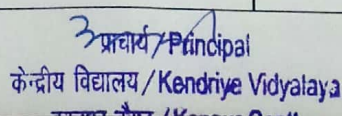 प्राचार्य/Principal
केन्द्रीय विद्यालय/Kendriye Vidyalaya